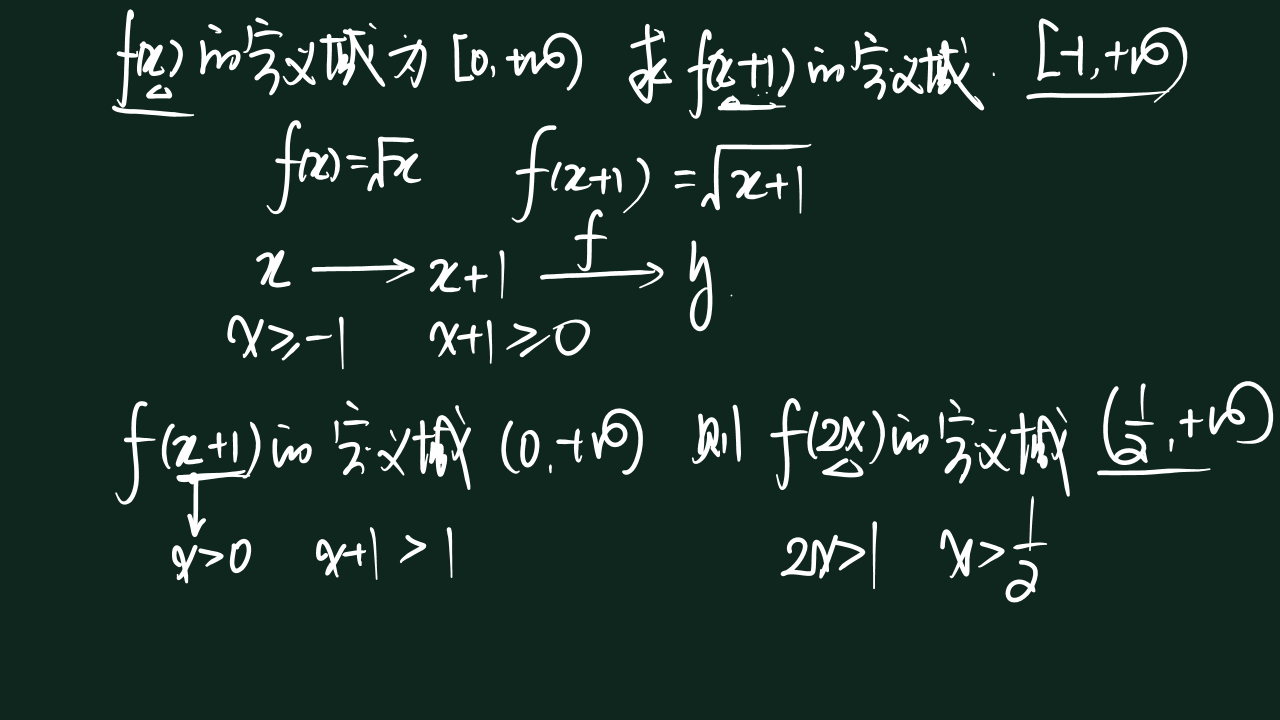 f(x)的定义域为[0,+∞) 求f(x+1)的定义域. [-1,+∞)
f(x)=√x f(x+1)=√(x+1)
x → x+1 →f y
x≥-1 x+1≥0
f(x+1)的定义域(0,+∞) 则f(2x)的定义域(1/2,+∞)
x>0 x+1>1 2x>1 x>1/2